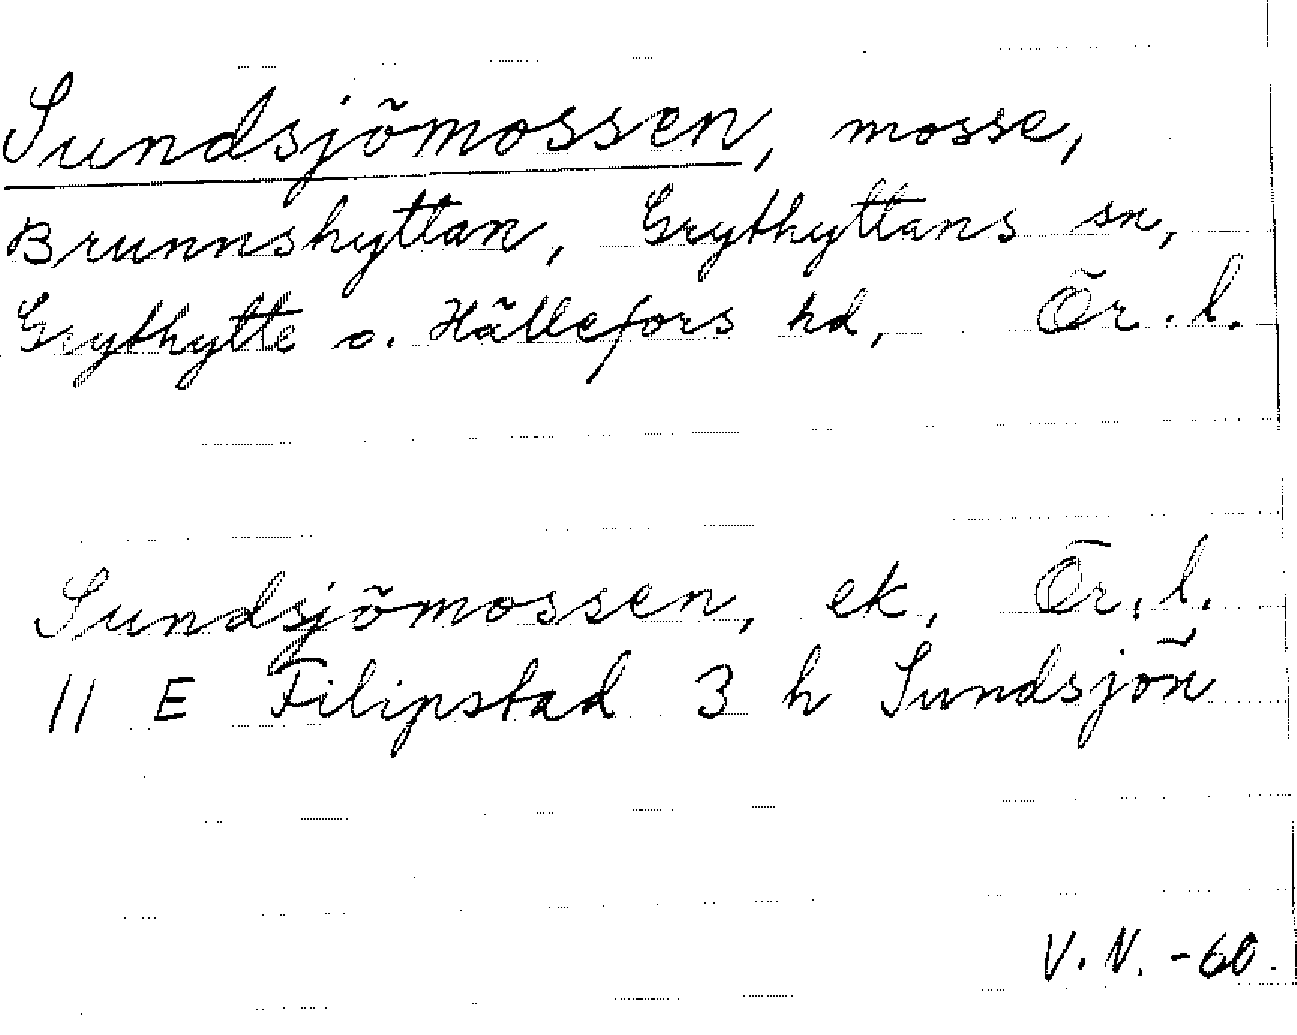 Sundsjömossen, mosse,
Brunnshyttan, Grythyttans sn,
Grythytte o. Hällefors hd, Ör. l.
Sundsjömossen, ek, Ör. l.
11 E Filipstad 3 h Sundsjön
V. N. -60.